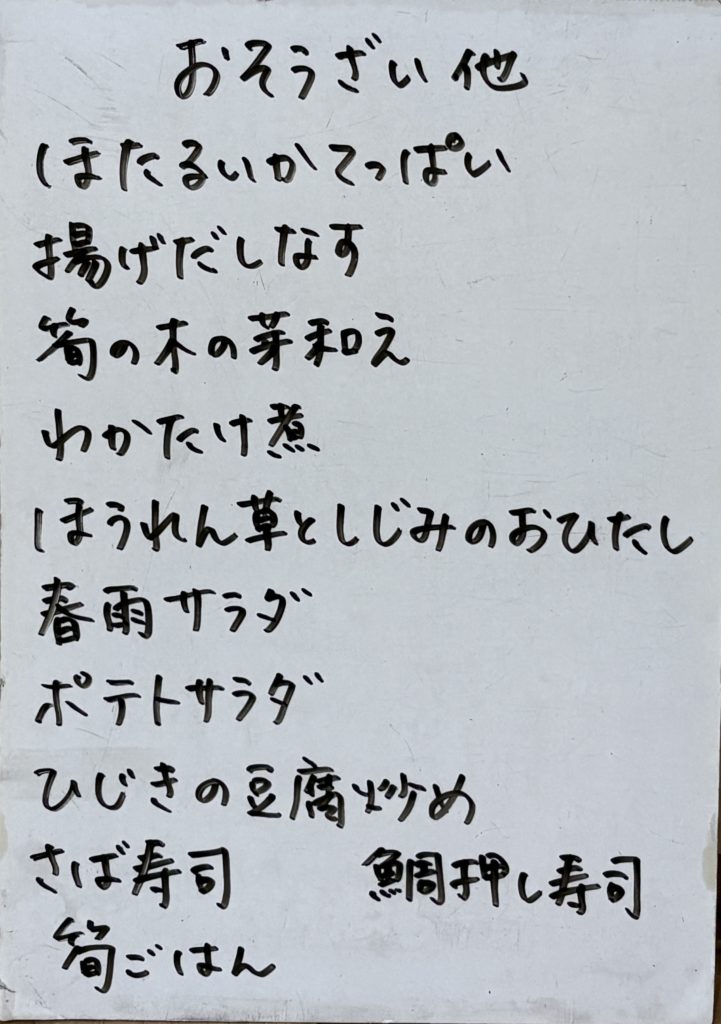 おそうざい 他
ほたるいかてっぱい
揚げだしなす
筍の木の芽和え
わかたけ煮
ほうれん草としじみのおひたし
春雨サラダ
ポテトサラダ
ひじきの豆腐炒め
さば寿司 鯛押し寿司
筍ごはん